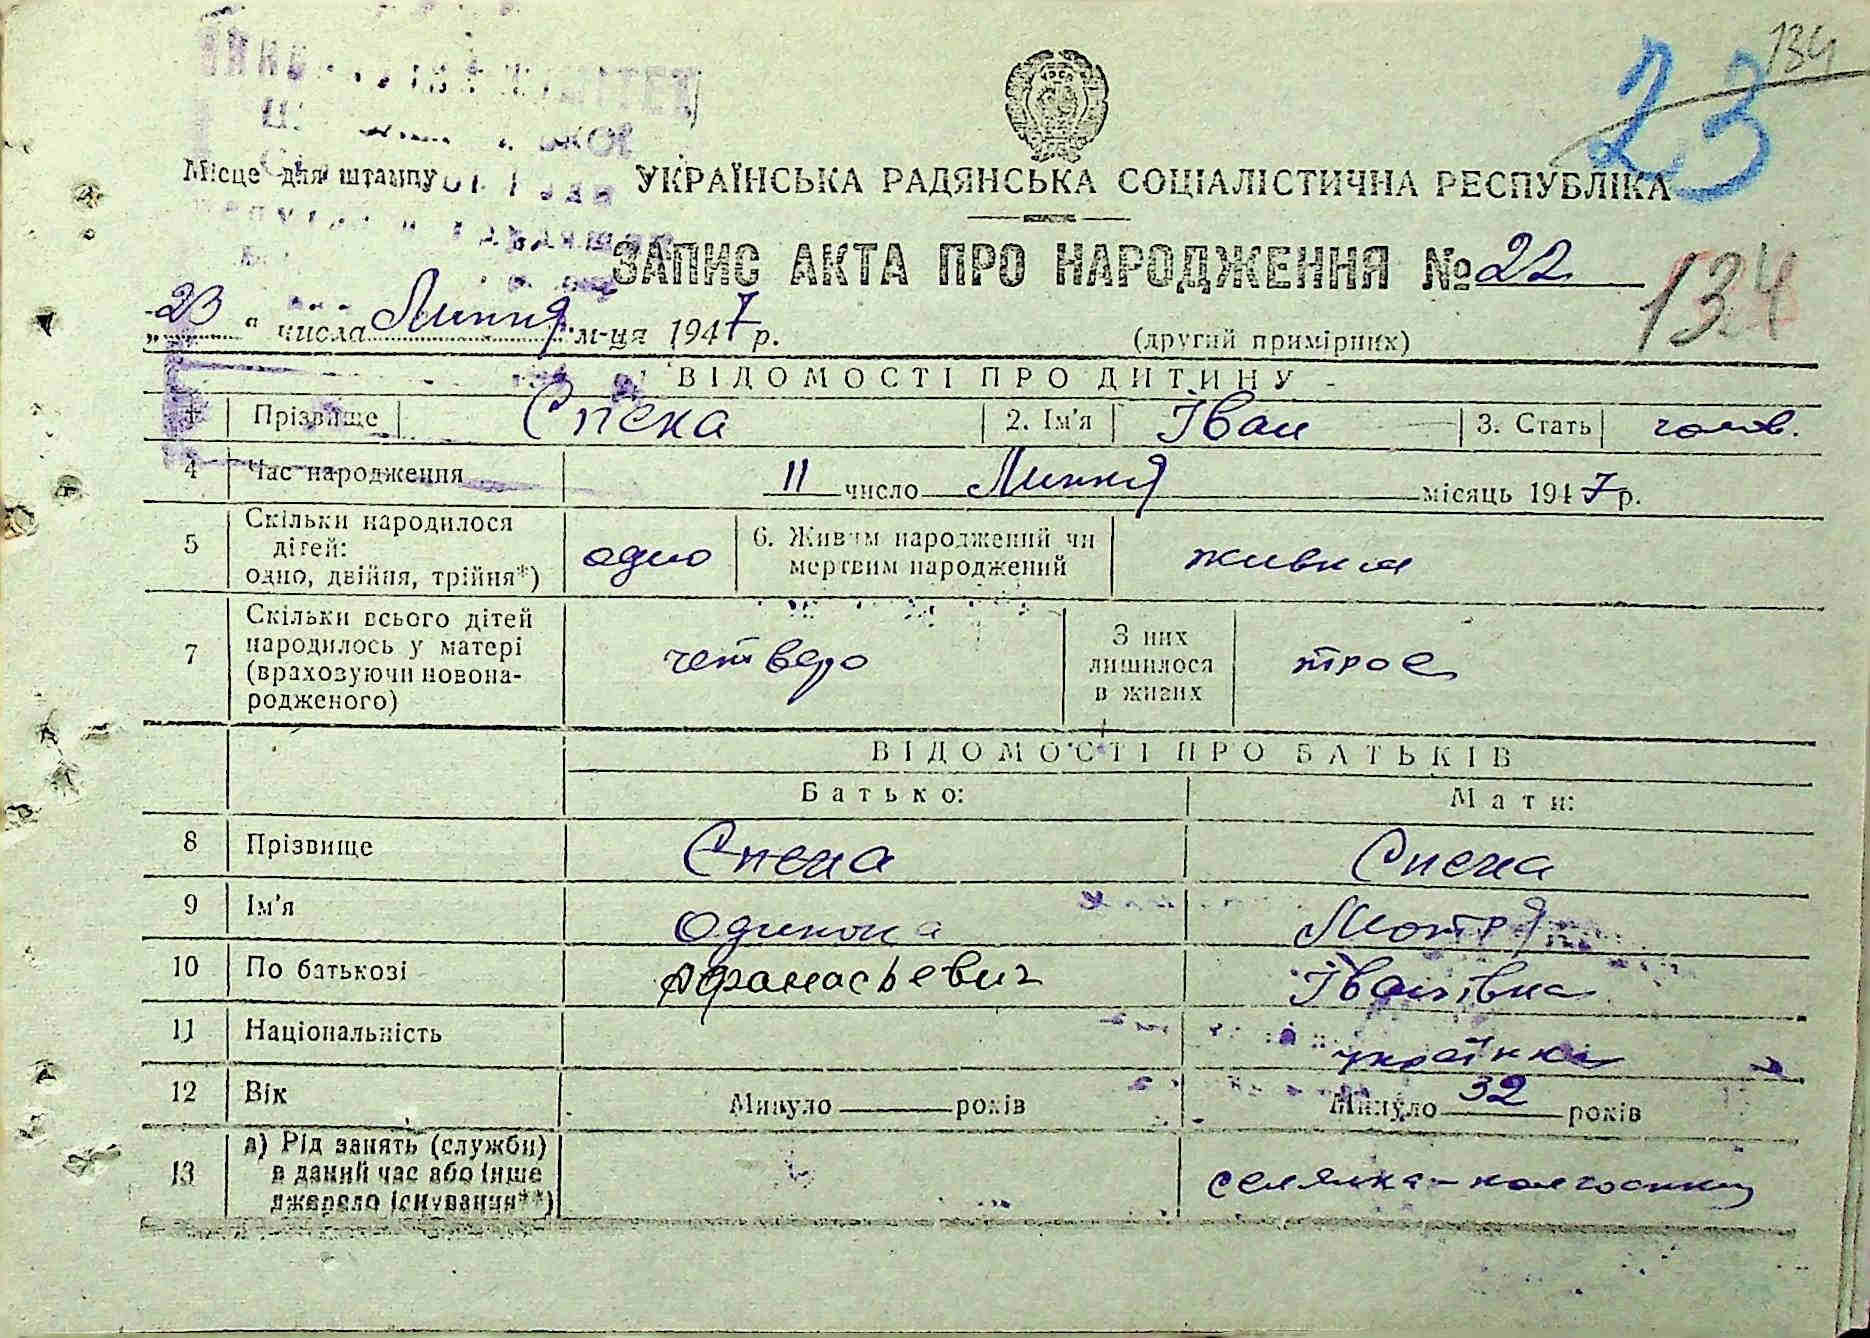 134
23
Місце для штампу
УКРАЇНСЬКА РАДЯНСЬКА СОЦІАЛІСТИЧНА РЕСПУБЛІКА
ЗАПИС АКТА ПРО НАРОДЖЕННЯ № 22
134
„23“ числа Липня м-ця 1947 р.
(другий примірник)
ВІДОМОСТІ ПРО ДИТИНУ
1 Прізвище Спека 2. Ім'я Іван 3. Стать чолов.
4 Час народження 11 число Липня місяць 1947 р.
5 Скільки народилося дітей: одно, двійня, трійня*) одно 6. Живим народжений чи мертвим народжений живим
7 Скільки всього дітей народилось у матері (враховуючи новонародженого) четверо З них лишилося в живих троє
ВІДОМОСТІ ПРО БАТЬКІВ
Батько: Мати:
8 Прізвище Спека Спека
9 Ім'я одинока Мотря
10 По батькові Афанасьевич Іванівна
11 Національність українка
12 Вік Минуло років Минуло 32 років
13 а) Рід занять (служби) в даний час або інше джерело існування**) селянка-колгоспниця